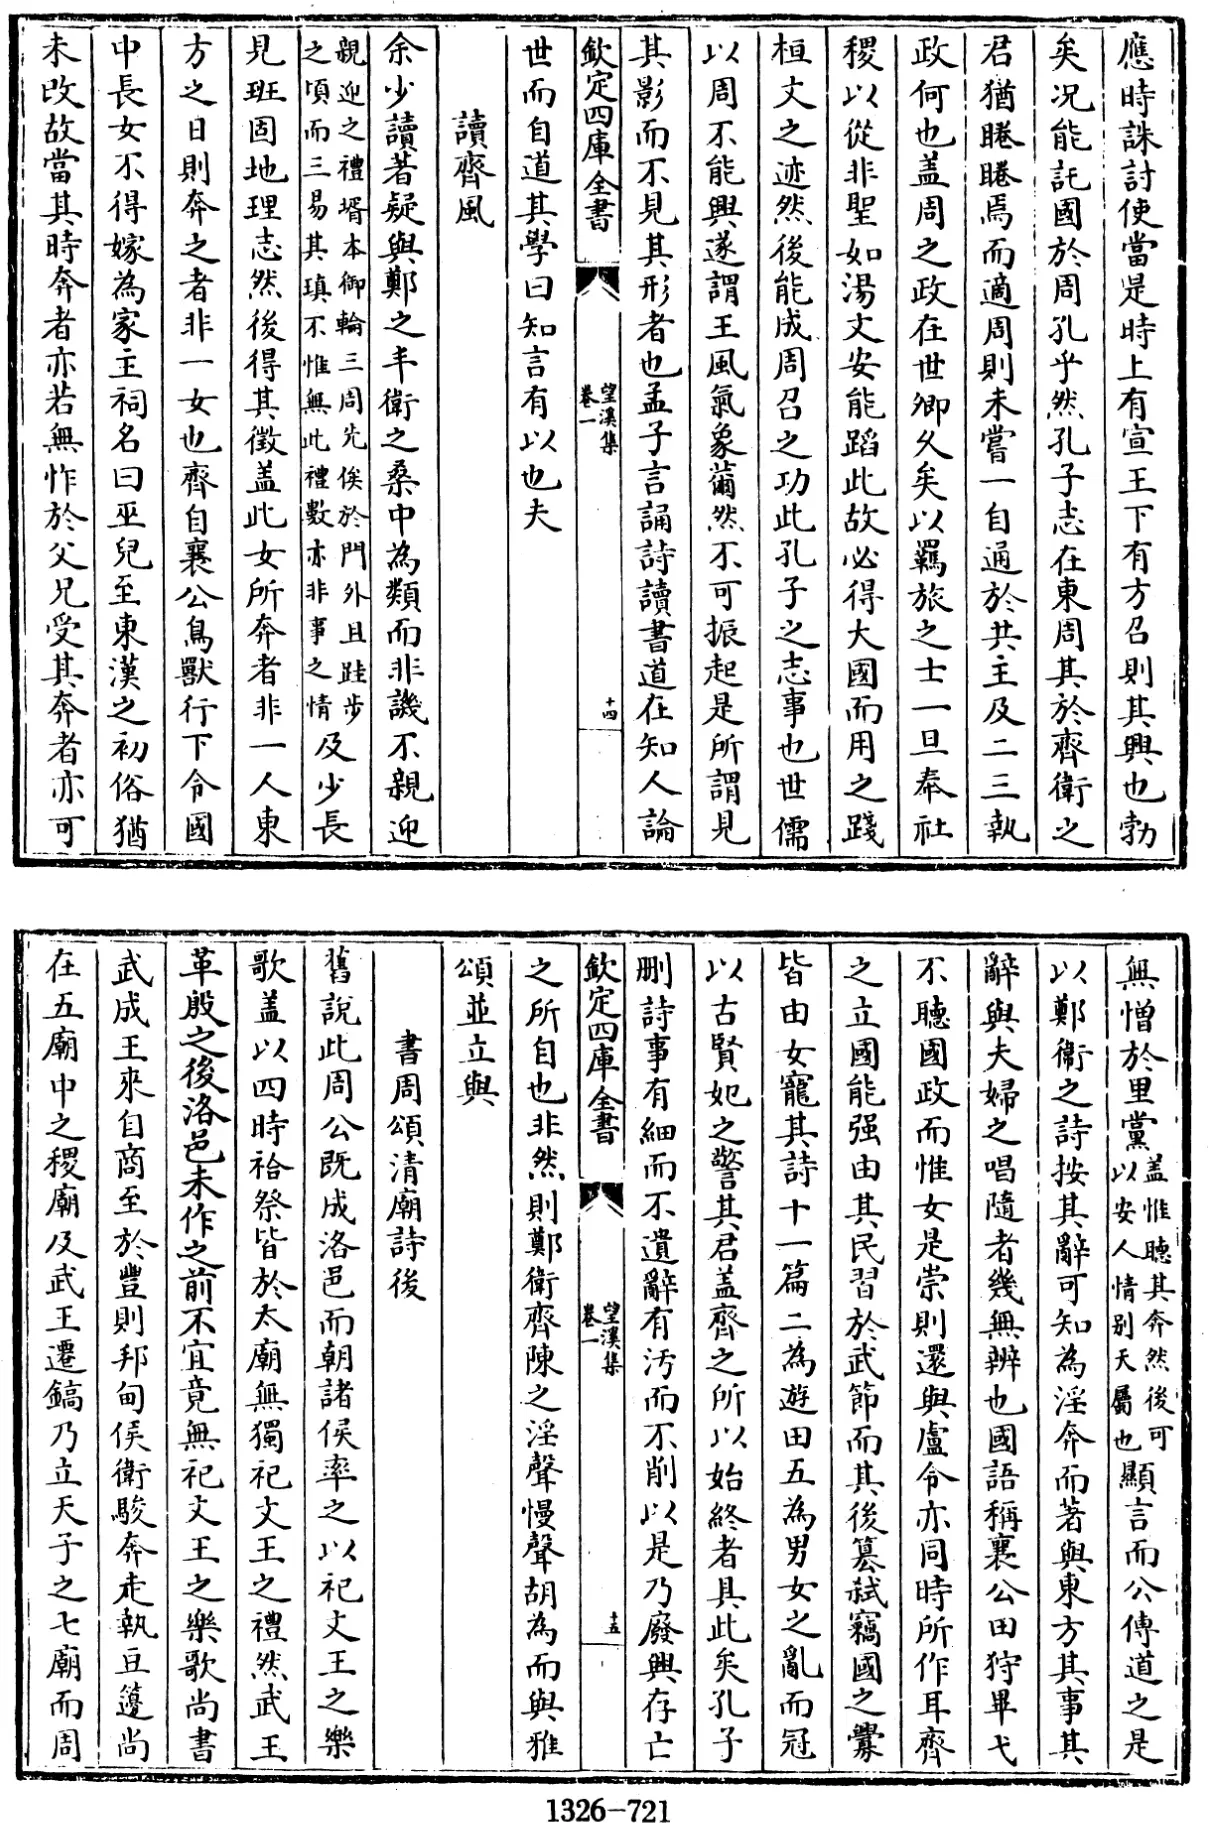 應時誅討使當是時上有宣王下有方召則其興也勃
矣况能託國於周孔乎然孔子志在東周其於齊衛之
君猶睠睠焉而適周則未嘗一自通於共主及二三執
政何也盖周之政在世卿久矣以羈旅之士一旦奉社
稷以從非聖如湯文安能蹈此故必得大國而用之踐
桓文之迹然後能成周召之功此孔子之志事也世儒
以周不能興遂謂王風氣象薾然不可振起是所謂見
其影而不見其形者也孟子言誦詩讀書道在知人論
欽定四庫全書
望溪集
卷一
十四
世而自道其學曰知言有以也夫
讀齊風
余少讀著疑與鄭之丰衛之桑中為類而非譏不親迎
親迎之禮壻本御輪三周先俟於門外且跬步
之頃而三易其瑱不惟無此禮數亦非事之情及少長
見班固地理志然後得其徵盖此女所奔者非一人東
方之日則奔之者非一女也齊自襄公鳥獸行下令國
中長女不得嫁為家主祠名曰巫兒至東漢之初俗猶
未改故當其時奔者亦若無怍於父兄受其奔者亦可
無憎於里黨盖惟聽其奔然後可
以安人情别天屬也顯言而公傳道之是
以鄭衛之詩按其辭可知為淫奔而著與東方其事其
辭與夫婦之唱隨者幾無辨也國語稱襄公田狩畢弋
不聽國政而惟女是崇則還與盧令亦同時所作耳齊
之立國能强由其民習於武節而其後簒弑竊國之釁
皆由女寵其詩十一篇二為遊田五為男女之亂而冠
以古賢妃之警其君盖齊之所以始終者具此矣孔子
删詩事有細而不遺辭有汚而不削以是乃廢興存亡
欽定四庫全書
望溪集
卷一
十五
之所自也非然則鄭衛齊陳之淫聲慢聲胡為而與雅
頌並立與
書周頌清廟詩後
舊說此周公既成洛邑而朝諸侯率之以祀文王之樂
歌盖以四時祫祭皆於太廟無獨祀文王之禮然武王
革殷之後洛邑未作之前不宜竟無祀文王之樂歌尚書
武成王來自商至於豐則邦甸侯衛駿奔走執豆籩尚
在五廟中之稷廟及武王遷鎬乃立天子之七廟而周
1326-721